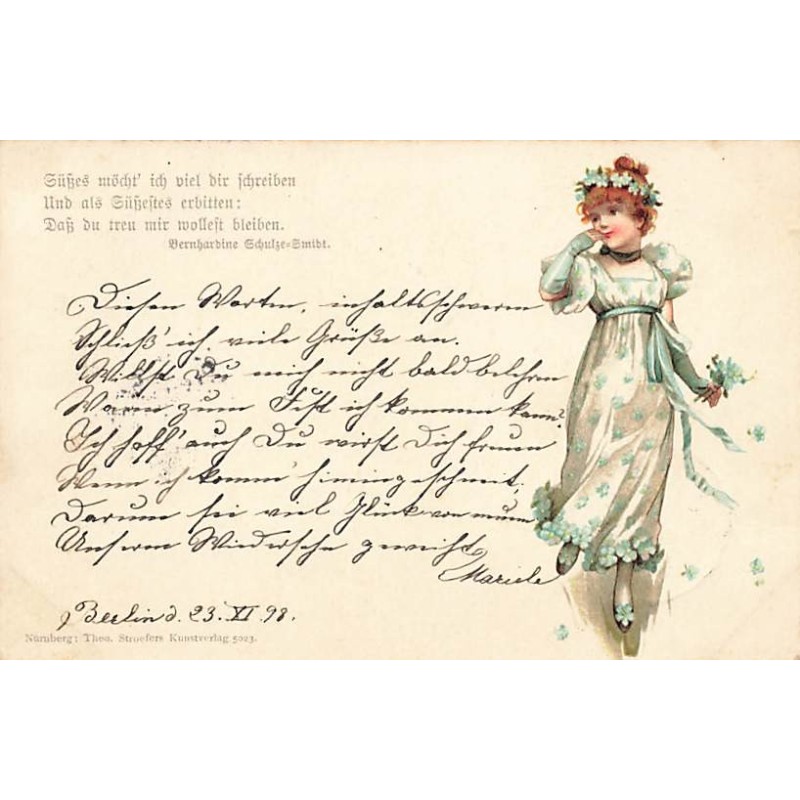 Süßes möcht' ich viel dir schreiben
Und als Süßestes erbitten:
Daß du treu mir wollest bleiben.
Bernhardine Schulze-Smidt.
Diesen Worten, inhaltsschweren
Schließ' ich viele Grüße an.
Willst Du mich nicht bald belehren
Wann zum Fest ich kommen kann?
Ich hoff' auch Du wirst Dich freuen
Wenn ich komm' hineingeschneit,
Darum sei viel Glück von neuem
Unserm Wiedersehn geweiht.
Mariele
Berlin d. 23. XI. 98.
Nürnberg: Theo. Stroefers Kunstverlag 5023.